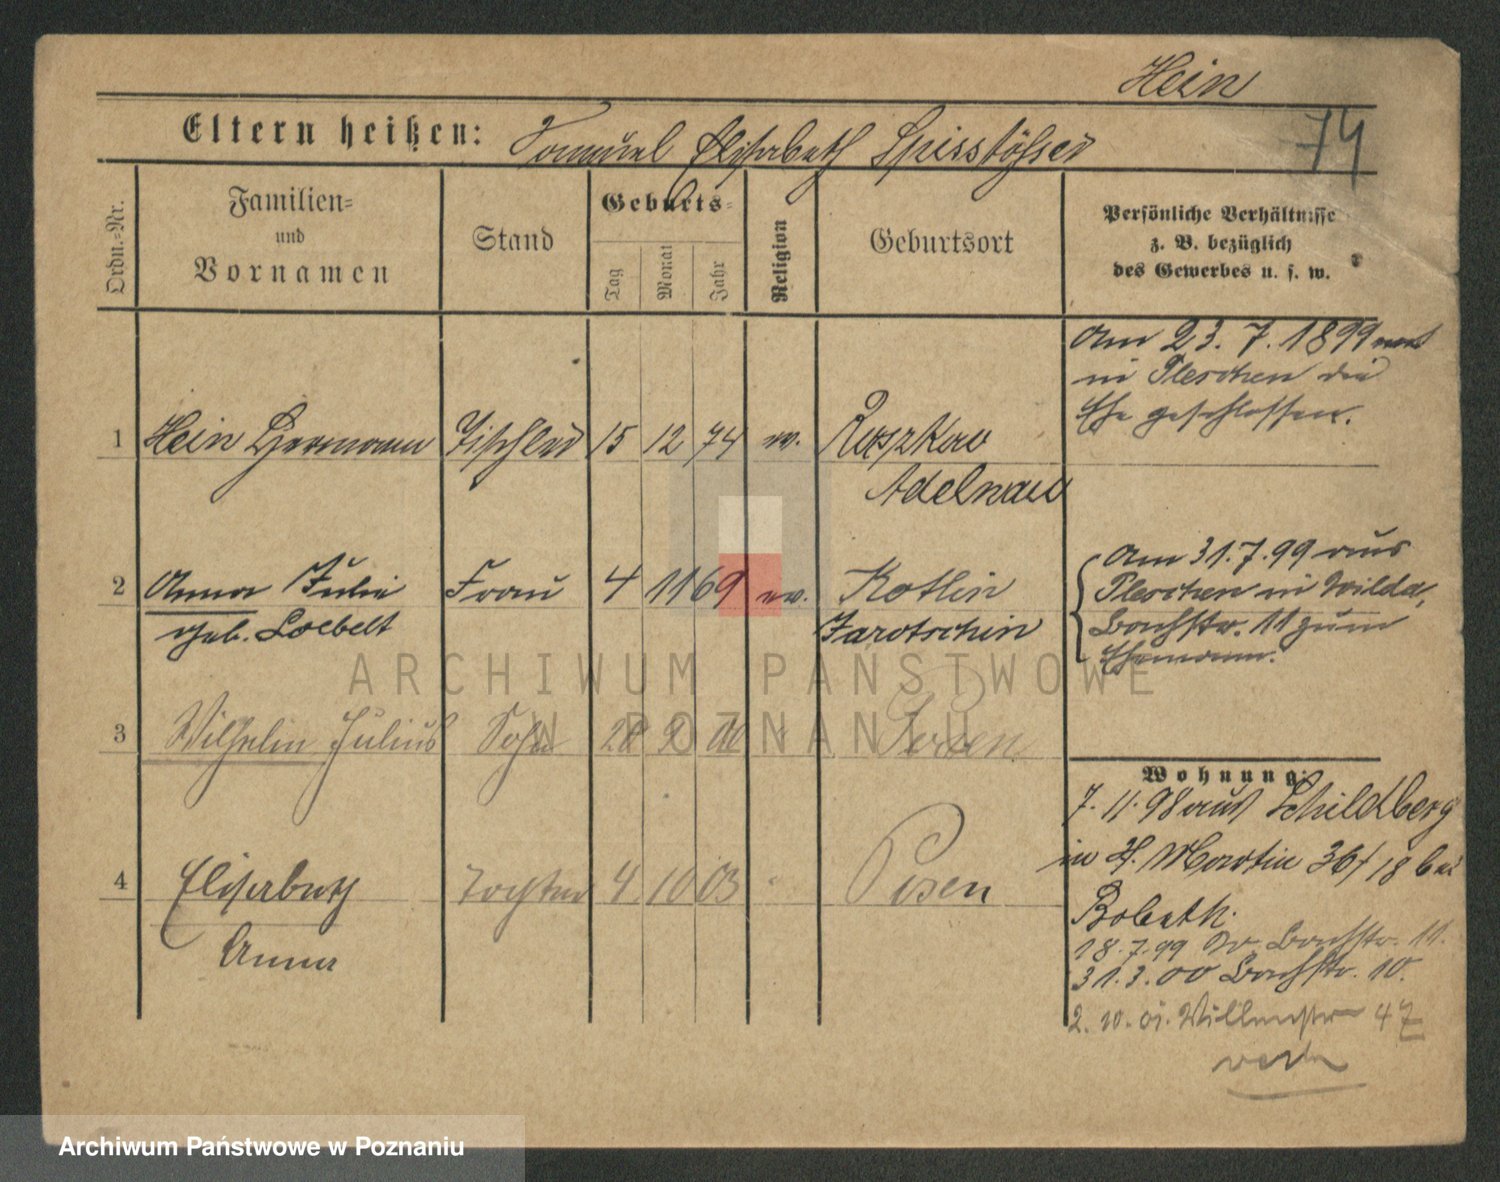 Hein
74
Eltern heißen: Samuel Elisabeth
Ordn.-Nr.
Familien-
und
Vornamen
Stand
Geburts-
Tag
Monat
Jahr
Religion
Geburtsort
Persönliche Verhältnisse
z. B. bezüglich
des Gewerbes u. s. w.
Am 23. 7. 1899
in Pleschen die
Ehe geschlossen.
1 Hein Hermann Tischler 15 12 74 ev. Raszkow
Adelnau
2 Anna Julie Frau 4 11 69 ev. Kotlin
geb. Loebelt Jarotschin
Am 31. 7. 99 aus
Pleschen in Wilda,
Bachstr. 11 zum
Ehemann.
3 Wilhelm Julius Sohn 28 9 00 Posen
4 Elisabeth Tochter 4 10 03 Posen
Anna
Wohnung:
7. 11. 98 aus Schildberg
in St. Martin 36/18 bei
18. 7. 99 Bachstr. 11.
31. 3. 00 Bachstr. 10.
2. 10. 01. 47
ARCHIWUM PAŃSTWOWE
W POZNANIU
Archiwum Państwowe w Poznaniu